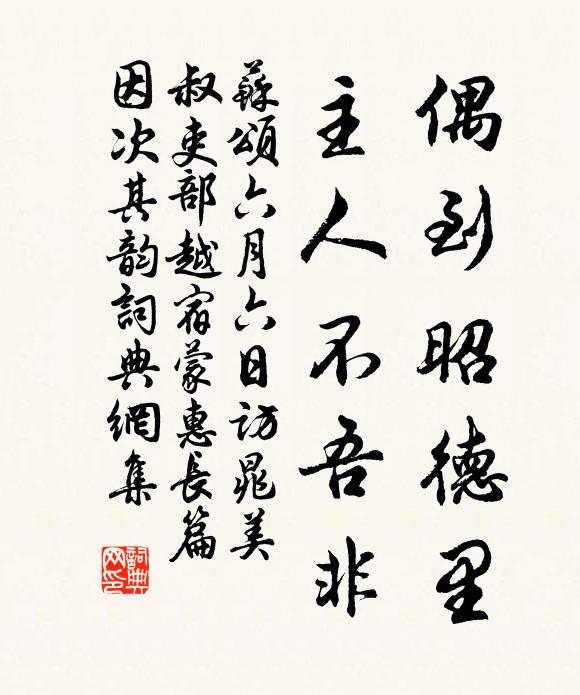 偶到昭德里
主人不吾非
蘇頌六月六日訪晁美
叔吏部越宿蒙惠長篇
因次其韵詞典網集
詞典網印